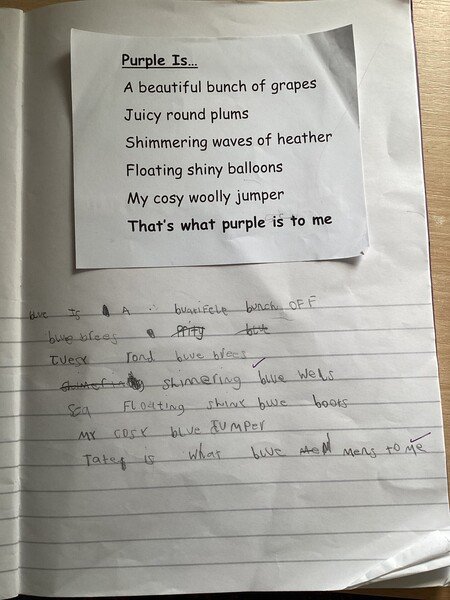 Purple Is...
A beautiful bunch of grapes
Juicy round plums
Shimmering waves of heather
Floating shiny balloons
My cosy woolly jumper
That's what purple is to me
blue Is A buatifele bunch OFF
blue brees prity blue
Iuesy rond blue brees
shimering blue wels
Sea Floating shinx blue boots
my cosy blue Jumper
Tates is what blue mens to me